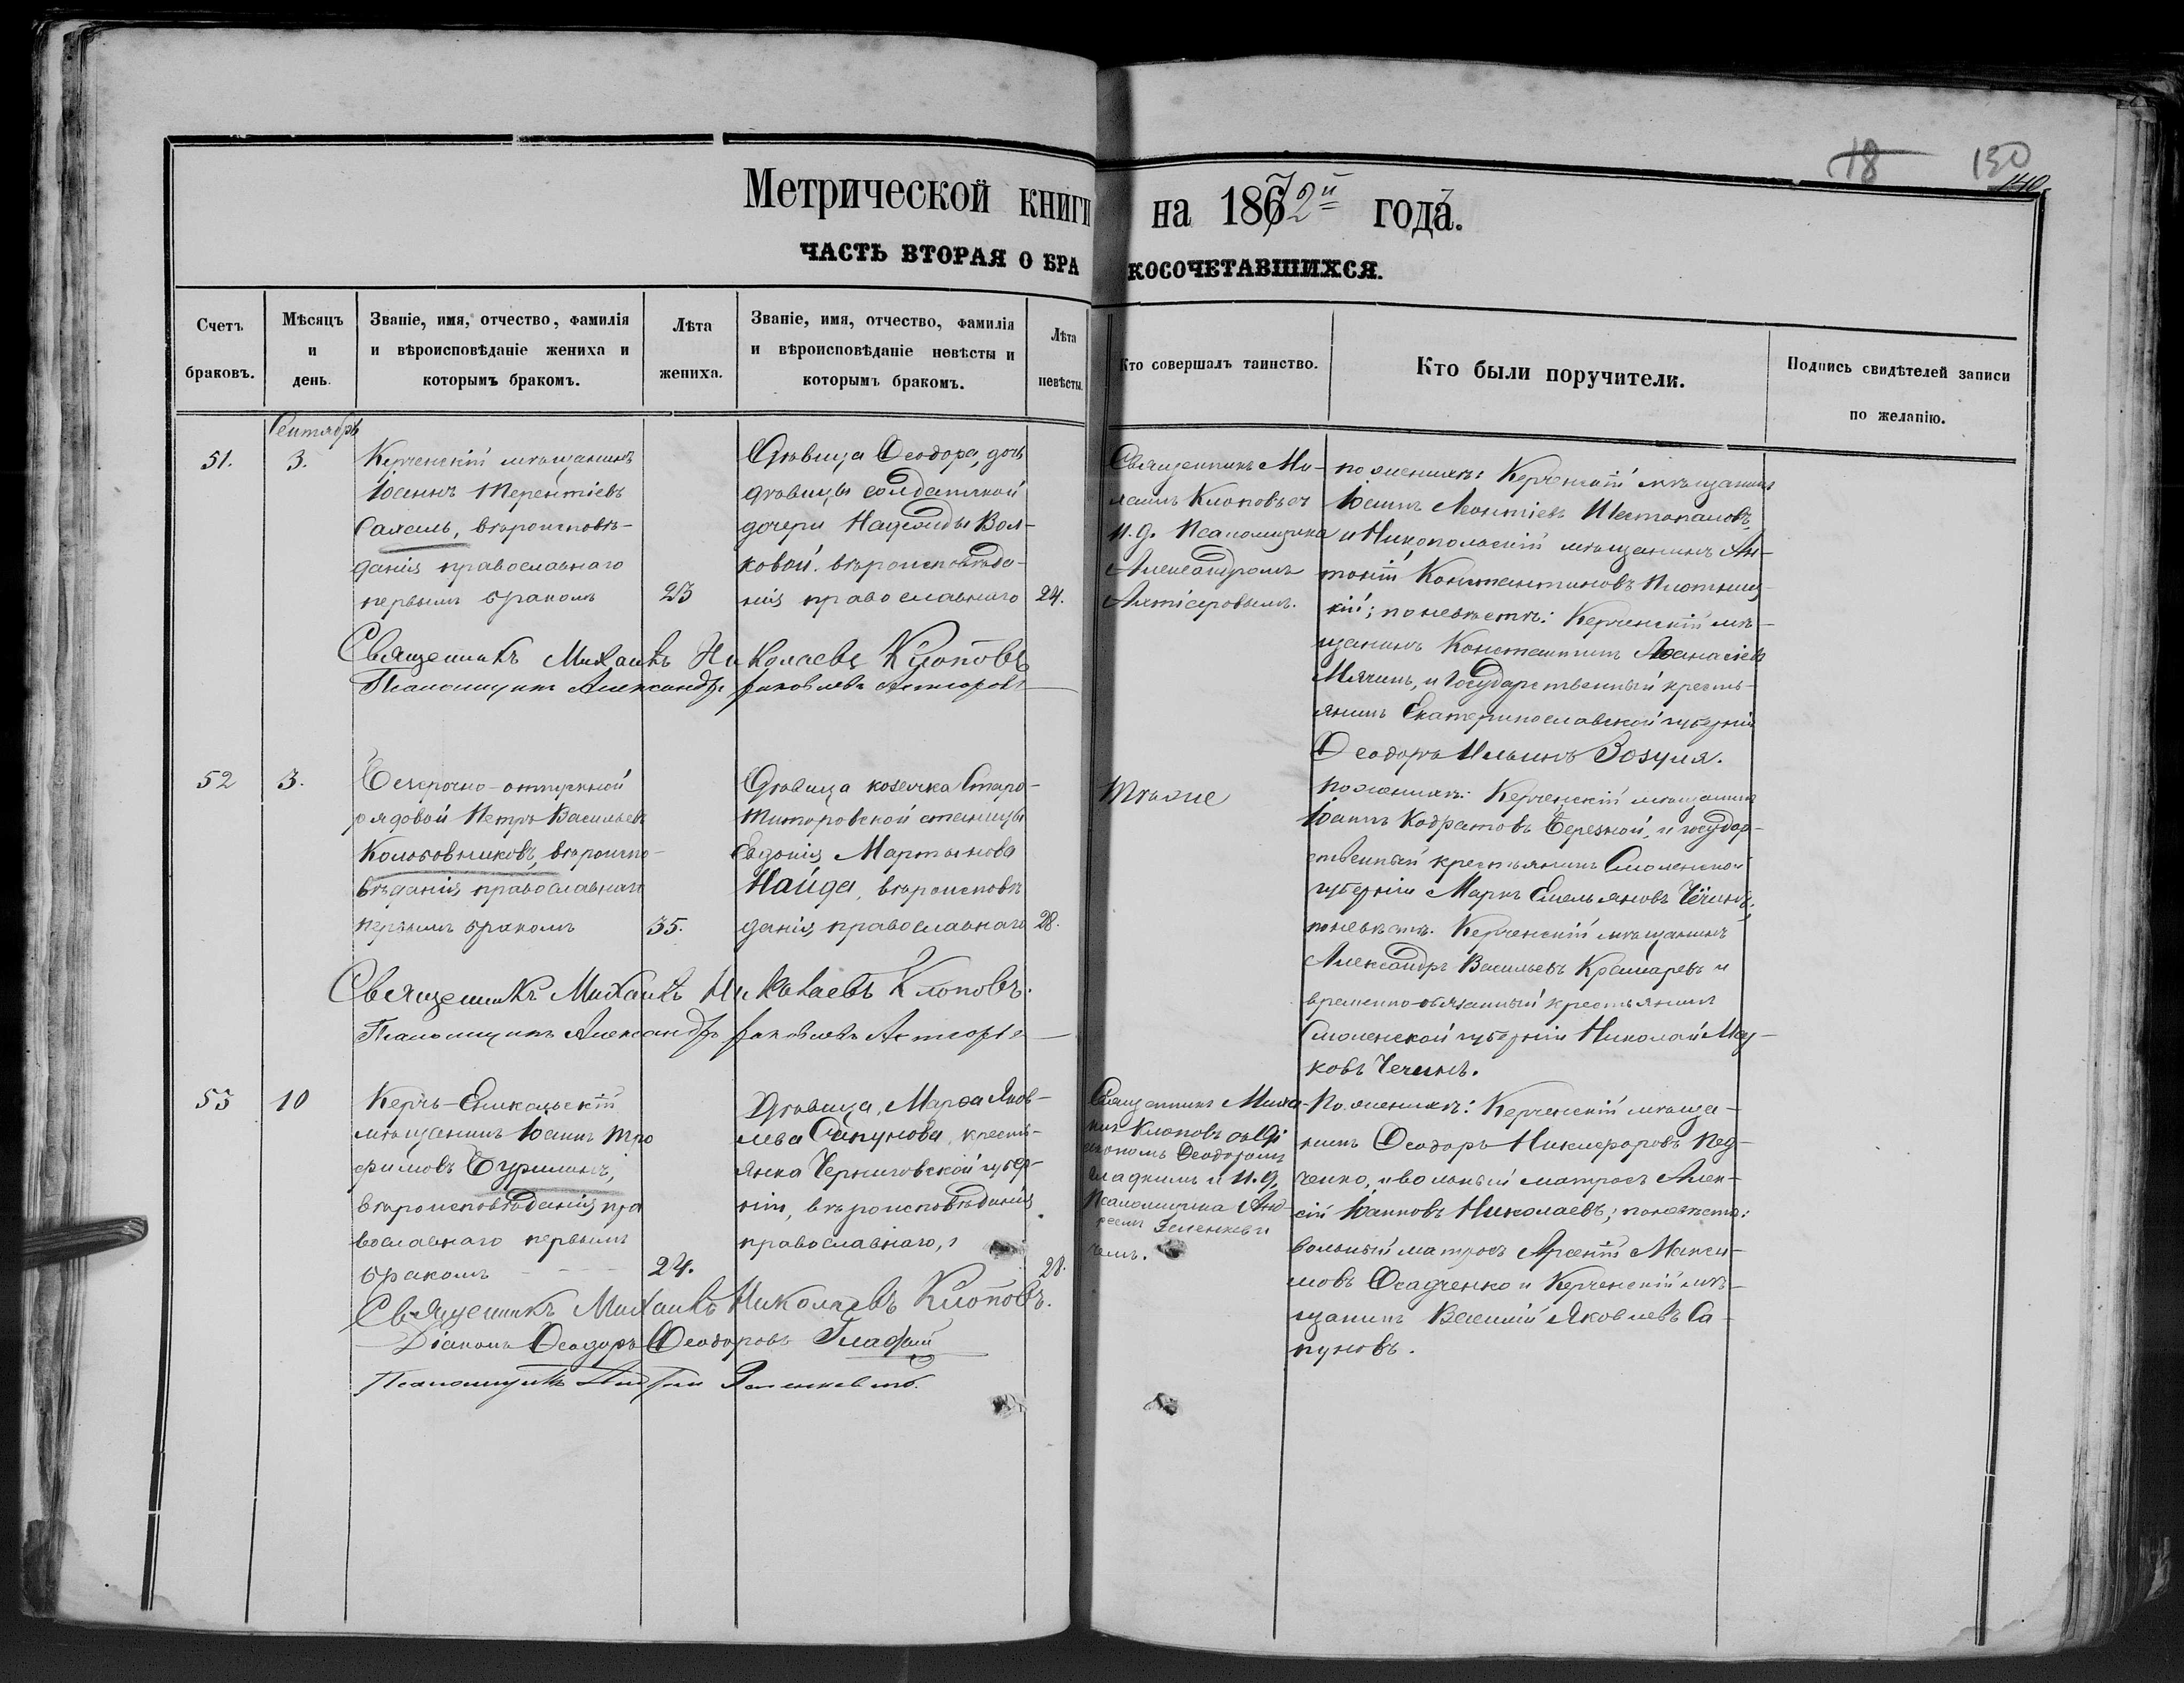 18 150
140
Метрической книги на 1872й года.
ЧАСТЬ ВТОРАЯ О БРАКОСОЧЕТАВШИХСЯ.
Счетъ браковъ.
Мѣсяцъ и день.
Званіе, имя, отчество, фамилія
и вѣроисповѣданіе жениха и
которымъ бракомъ.
Лѣта жениха.
Званіе, имя, отчество, фамилія
и вѣроисповѣданіе невѣсты и
которымъ бракомъ.
Лѣта невѣсты.
Кто совершалъ таинство.
Кто были поручители.
Подпись свидѣтелей записи
по желанію.
Сентябрь
51.
3.
Керченскій мѣщанинъ
Іоаннъ Терентіевъ
Сахаль, вѣроисповѣ-
данія православнаго
первымъ бракомъ
23
Дѣвица Ѳеодора, дочь
дѣвицы солдатской
дочери Надежды Вол-
ковой. вѣроисповѣда-
нія православнаго
24.
Священникъ Ми-
хаилъ Клоповъ съ
и. д. Псаломщика
Александромъ
по женихѣ: Керченскій мѣщанинъ
Іоаннъ Леонтіевъ Шестопаловъ,
и Никопольскій мѣщанинъ Ан-
тоній Константиновъ Плотниц-
кій; по невѣстѣ: Керченскій мѣ-
щанинъ Константинъ Аѳанасіевъ
Мячинъ, и Государственный кресть-
янинъ Екатеринославской губерніи
Ѳеодоръ Ильинъ Зозуля.
Священникъ Михаилъ Николаевъ Клоповъ
Псаломщикъ Александръ Яковлевъ
52
3.
Безсрочно-отпускной
рядовой Петръ Васильевъ
Колобовниковъ, вѣроиспо-
вѣданія православнаго
первымъ бракомъ
35.
Дѣвица козачка Старо-
Титоровской станицы
Евдокія Мартынова
Найда, вѣроисповѣ
данія православнаго
28.
Тѣже
По женихѣ: Керченскій мѣщанинъ
Іоаннъ Кодратовъ Березной, и государ-
ственный крестьянинъ Смоленской
губерніи Маркъ Емельяновъ Чечинъ;
по невѣстѣ. Керченскій мѣщанинъ
Александръ Васильевъ Крамаревъ и
временно-обязанный крестьянинъ
Смоленской губерніи Николай Мар-
ковъ Чечинъ.
Священникъ Михаилъ Николаевъ Клоповъ.
Псаломщикъ Александръ Яковлевъ
53
10
Керчь-Еникальскій
мѣщанинъ Іоаннъ Тро
фимовъ Бурлинъ,
вѣроисповѣданія пра
вославнаго первымъ
бракомъ - - -
24.
Дѣвица, Марѳа Яков-
лева Сапунова, кресть-
янка Черниговской губер-
ніи, вѣроисповѣданія
православнаго,
28.
Священникъ Миха-
илъ Клоповъ съ Ді
акономъ Ѳеодоромъ
Гладкимъ и и. д.
Псаломщика Анд
реемъ Зеленкеви
чемъ.
По женихѣ: Керченскій мѣща-
нинъ Ѳеодоръ Никифоровъ Пед-
ченко, и вольный матросъ Алек-
сій Іоанновъ Николаевъ; по невѣстѣ:
вольный матросъ Арсеній Макси-
мовъ Осадченко и Керченскій мѣ-
щанинъ Василій Яковлевъ Са-
пуновъ.
Священникъ Михаилъ Николаевъ Клоповъ.
Діаконъ Ѳеодоръ Ѳеодоровъ Гладкій
Псаломщикъ Андрей Зеленкевичъ.